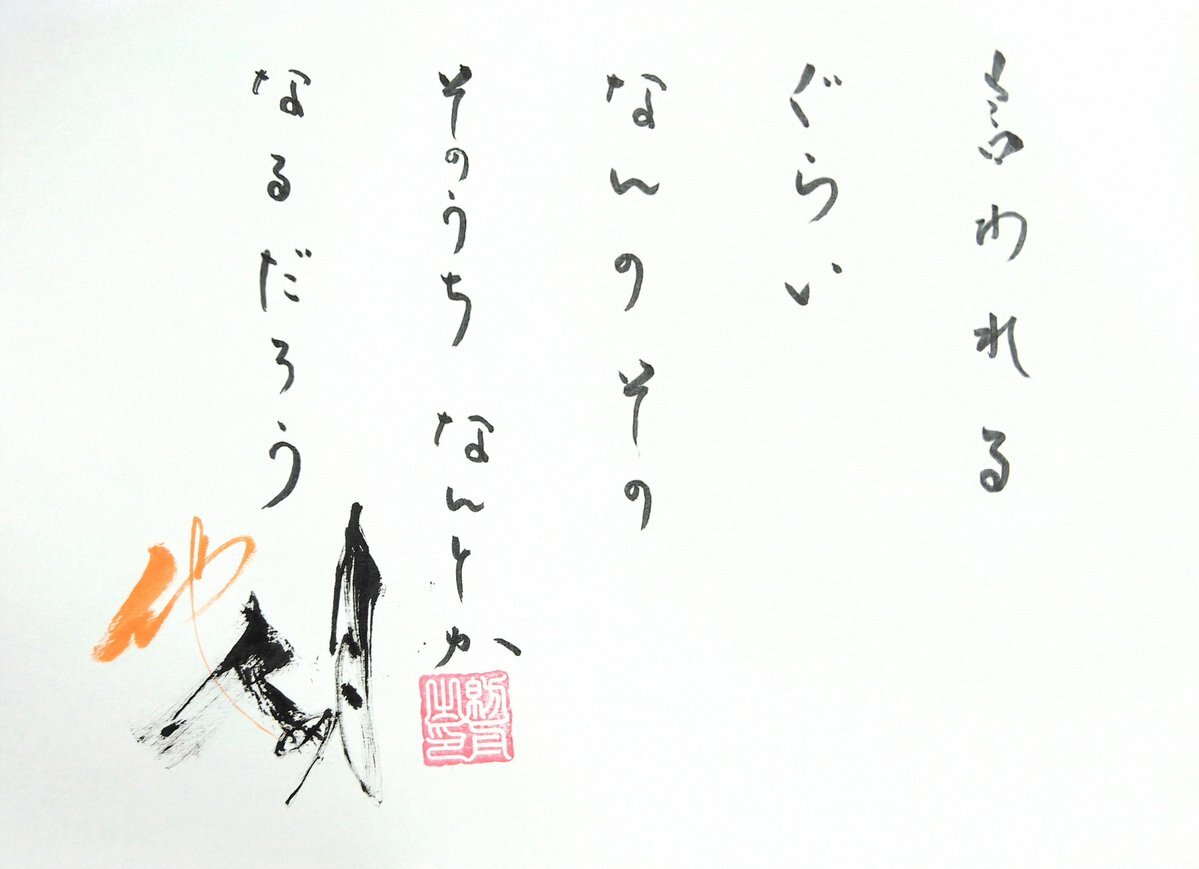 言われる
ぐらい
なんのその
そのうち なんとか
なるだろう